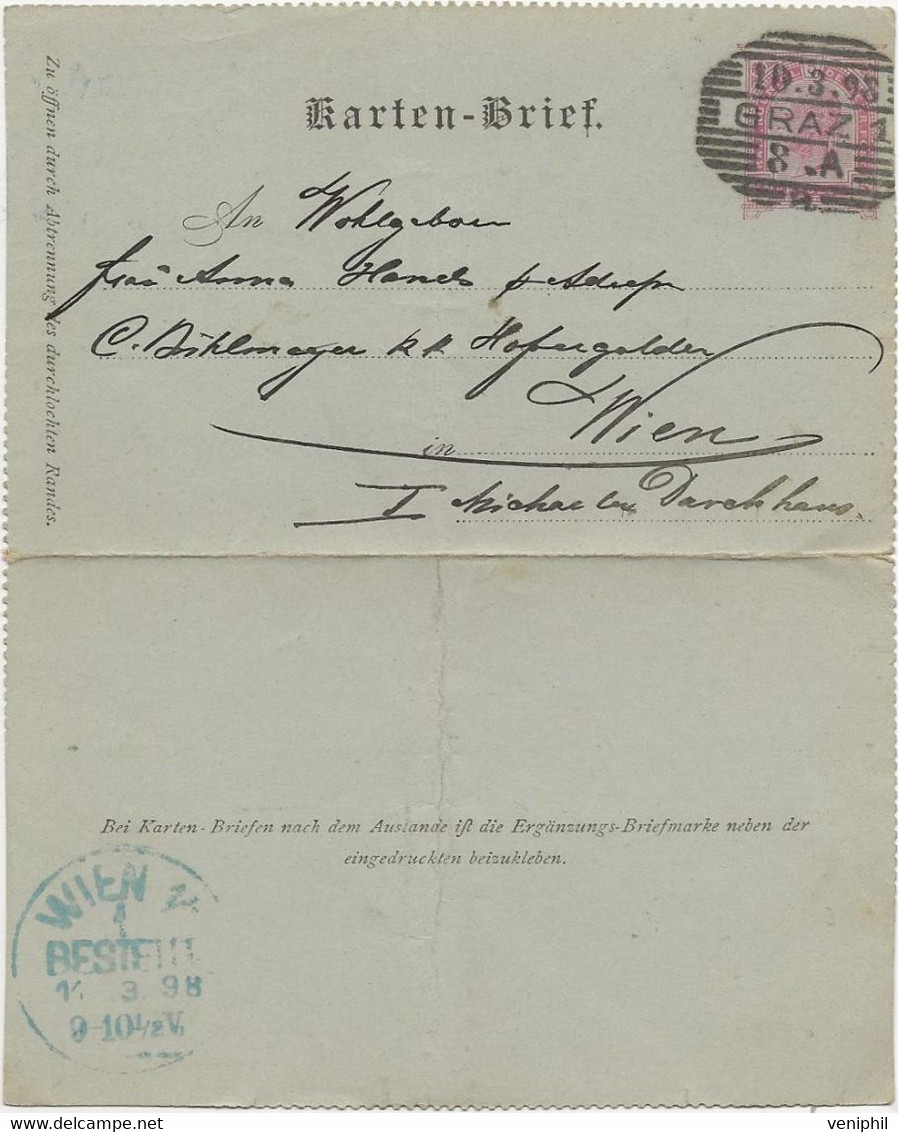 Karten-Brief.
10.3.98
GRAZ 1
8.A
An Wohlgeboren
Frau Anna Hand p Adresse
C. Bühlmayer k k Hofvergolder
in Wien
I Michaeler Durchhaus.
Zu öffnen durch Abtrennung des durchlochten Randes.
Bei Karten-Briefen nach dem Auslande ist die Ergänzungs-Briefmarke neben der
eingedruckten beizukleben.
WIEN
1
BESTELLT
3 98
9-10½V.
veniphil